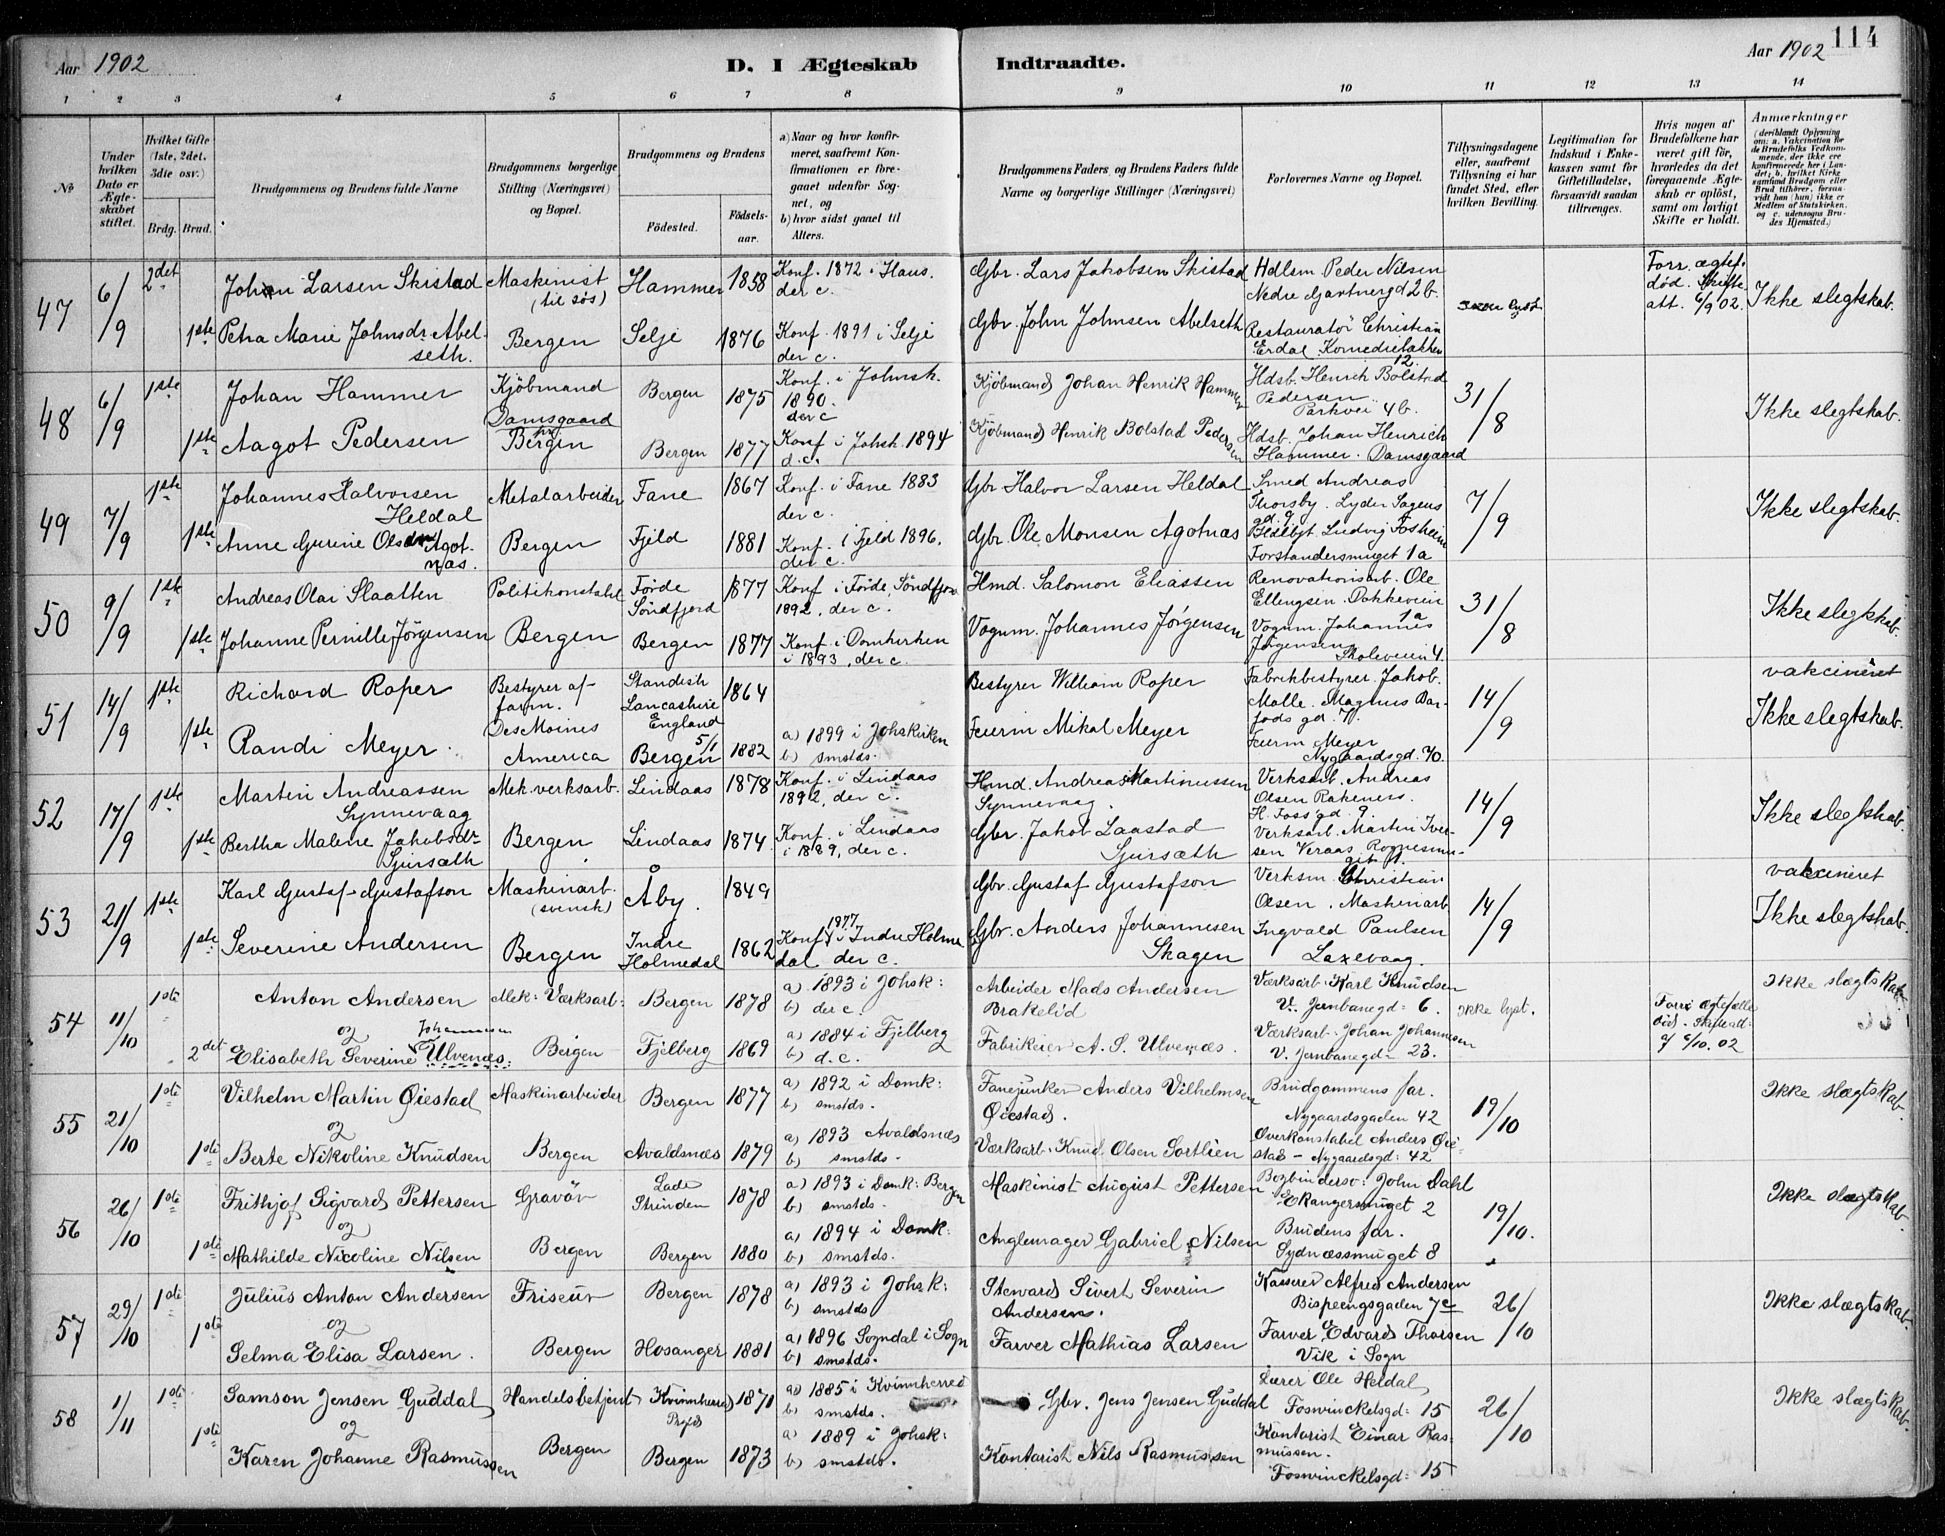 Aar 1902
D. I Ægteskab
Indtraadte.
Aar 1902
114
1 2 3 4 5 6 7 8 9 10 11 12 13 14
№
Under hvilken Dato er Ægteskabet stiftet.
Hvilket Gifte (1ste, 2det, 3die osv.)
Brdg. Brud.
Brudgommens og Brudens fulde Navne
Brudgommens borgerlige Stilling (Næringsvei) og Bopæl.
Brudgommens og Brudens
Födested.
Födsels-aar.
a) Naar og hvor konfirmeret, saafremt Konfirmationen er foregaaet udenfor Sognet, og
b) hvor sidst gaaet til Alters.
Brudgommens Faders og Brudens Faders fulde Navne og borgerlige Stillinger (Næringsvei)
Forlovernes Navne og Bopæl.
Tillysningsdagene eller, saafremt Tillysning ei har fundet Sted, efter hvilken Bevilling.
Legitimation for Indskud i Enkekassen samt for Giftetilladelse, forsaavidt saadan tiltrænges.
Hvis nogen af Brudefolkene har været gift för, hvorledes da det foregaaende Ægteskab er oplöst, samt om lovligt Skifte er holdt.
Anmærkninger
(deriblandt Oplysning om: a. Vakcination for de Brudefolks Vedkommende, der ikke ere konfirmerede her i Landet; b. hvilket Kirkesamfund Brudgom eller Brud tilhörer, forsaavidt han (hun) ikke er Medlem af Statskirken, og c. udensogns Brudes Hjemsted.)
47 6/9 2det Johan Larsen Skistad Maskinist (til søs) Hammer 1858 Konf. 1872 i Haus. der c. Gbr. Lars Jakobsen Skistad Hdlsm Peder Nilsen Nedre Gartnergd 2 b. Forr. ægtef. død. Skifteatt. 6/9 02. Ikke slegtskab.
1ste Petra Marie Johnsdr Abelseth. Bergen Selje 1876 Konf. 1891 i Selje der c. Gbr. John Johnsen Abelseth Restauratør Christian Erdal. Komediebakken 12
48 6/9 1ste Johan Hammer Kjöbmand Damsgaard Bergen 1875 Konf. i Johnsk. 1890. der c Kjöbmand Johan Henrik Hammer Hdsb. Henrik Bolstad Pedersen Parkvei 4 b. 31/8 Ikke slegtskab.
1ste Aagot Pedersen Bergen Bergen 1877 Konf i Johsk. 1894 d.c. Kjöbmand Henrik Bolstad Pedersen Hdsb. Johan Henrich Hammer. Damsgaard
49 7/9 1ste Johannes Halvorsen Heldal Metalarbeider Fane 1867 Konf. i Fane 1883 der c. Gbr Halvor Larsen Heldal Smed Andreas Thorsby. Lyder Sagens gd. 9 7/9 Ikke slegtskab.
1ste Anne Gurine Olsdtr Agotnæs. Bergen Fjeld 1881 Konf. i Fjeld 1896. der c. Gbr. Ole Monsen Agotnæs Ludvig Fosheim Forstandersmuget 1 a
50 9/9 1ste Andreas Olai Slaatten Politikonstabel Førde Søndfjord 1877 Konf i Førde, Söndfjor 1892, der c. Hmd. Salomon Eliassen Renovationsarb. Ole Ellingsen. Dokkeveien 1 a 31/8 Ikke slegtskab.
1ste Johanne Pernille Jörgensen Bergen Bergen 1877 Konf. i Domkirken i 1893, der c. Vognm. Johannes Jørgensen Vognm. Johannes Jørgensen Skoleveien 4.
51 14/9 1ste Richard Roper Bestyrer af farm. Des Moines America Standish Lancashire England 1864 Bestyrer William Roper Fabrikbestyrer Jakob Molle. Magnus Barfods gd. 14/9 vakcineret Ikke slegtskab.
1ste Randi Meyer. Bergen 5/1 1882 a) 1899 i Johskirken b) smstds. Feierm Mikal Meyer Feierm Meyer Nygaardsgd. 70.
52 17/9 1ste Martin Andreassen Synnevaag Mek. verksarb. Lindaas 1878 Konf. i Lindaas 1892, der c. Hmd. Andreas Martinussen Synnevaag. Verksarb. Andreas Olsen Rakenes. H. Foss gd. 9. 14/9 Ikke slegtskab.
1ste Bertha Malene Jakobsdr Sjursæth Bergen Lindaas 1874 Konf. i Lindaas i 1889, der c. Gbr. Jakob Laastad Sjursæth Verksarb. Martin Iversen Veraas
53 21/9 1ste Karl Gustaf Gustafson Maskinarb. (svensk) Åby. 1849 Gbr. Gustaf Gustafson Verksm. Christian Olsen. Maskinarb 14/9 vakcineret Ikke slegtskab.
1ste Severine Andersen Bergen Indre Holmedal 1862 Konf. 1877 i Indre Holmedal der c. Gbr. Anders Johannesen Skagen Ingvald Paulsen Laxevaag.
54 11/10 1ste Anton Andersen Mek: Værksarb: Bergen 1878 a) 1893 i Johsk: b) der c. Arbeider Mads Andersen Brakelid Værksarb. Karl Knudsen V. Jernbanegd: 6. Ikke lyst. Forr: Ægtefælle död. Skifteatt: 9/10. 02 Ikke slægtskab.
og
2det Elisabeth Severine Johannesen Ulvenæs. Bergen Fjelberg 1869 a) 1884 i Fjelberg b) d. c. Fabrikeier A. S. Ulvenæs. Værksarb. Johan Johannesen V. Jernbanegd: 23.
55 21/10 1ste Vilhelm Martin Øiestad Maskinarbeider Bergen 1877 a) 1892 i Domk: b) smstds. Fanejunker Anders Vilhelmsen Øiestad. Brudgommens far. Nygaardsgaden 42 19/10 Ikke slægtskab.
og
1ste Berte Nikoline Knudsen Bergen Avaldsnæs 1879 a) 1893 Avaldsnæs b) smstds. Værksarb. Knud Olsen Sortlien Overkonstabel Anders Øiestad – Nygaardsgd: 42
56 26/10 1ste Frithjof Sigvard Pettersen Gravör Lade Strinden 1878 a) 1893 i Domk: Bergen b) smstds. Maskinist August Pettersen Bogbindersv: John Dahl Ekangersmuget 2 19/10. Ikke slægtskab.
og
1ste Mathilde Nicoline Nilsen Bergen Bergen 1880 a) 1894 i Domk: b) smstds. Anglemager Gabriel Nilsen Brudens far. Sydnæssmuget 8
57 29/10 1ste Julius Anton Andersen Friseur Bergen 1878 a) 1893 i Johsk: b) smstds Steward Sivert Severin Andersen. Kasserer Alfred Andersen Bispeengsgaden 7c 26/10 Ikke slægtskab.
og
1ste Selma Elisa Larsen. Bergen Hosanger 1881 a) 1896 Sogndal i Sogn b) smstds. Farver Mathias Larsen Farver Edvard Thorsen Vik i Sogn
58 1/11 1ste Samson Jensen Guddal Handelsbetjent Kvinnherred Prgjd 1871 a) 1885 i Kvinnherred b) smstds. Gbr. Jens Jensen Guddal Lærer Ole Heldal, Foswinckelsgd: 15 26/10 Ikke slægtskab.
og
1ste Karen Johanne Rasmussen Bergen Bergen 1873 a) 1889 i Johsk: b) smstds. Kontorist Nils Rasmussen Kontorist Einar Rasmussen. Foswinckelsgd: 15